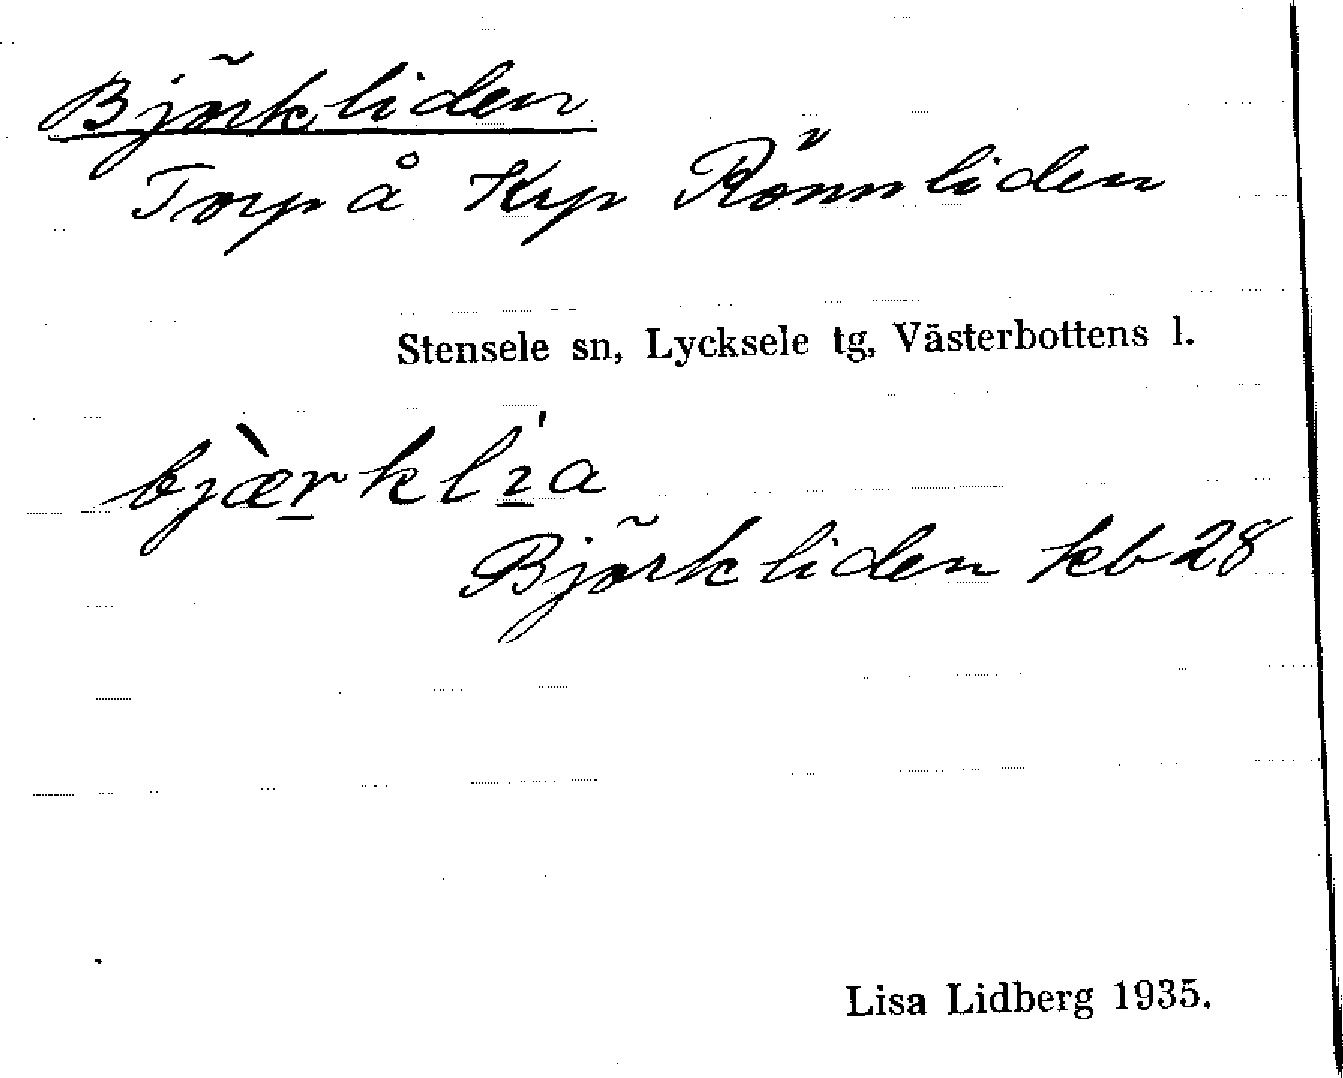 Björkliden
Torp å Krp Rönnliden
Stensele sn, Lycksele tg, Västerbottens l.
bjæ̀r̲klı̲́a
Björkliden kb 28
Lisa Lidberg 1935.